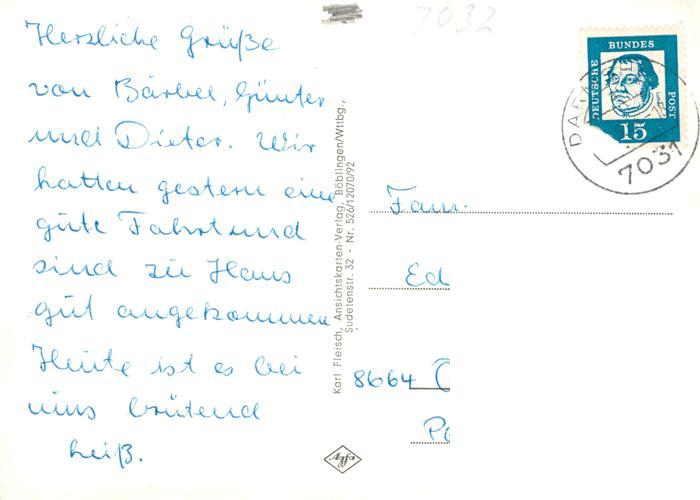 7032
Herzliche Grüße
von Bärbel, Günter
und Dieter. Wir
hatten gestern eine
gute Fahrt und
sind zu Haus
gut angekommen
Heute ist es bei
uns brütend
heiß.
Karl Fleisch, Ansichtskarten-Verlag, Böblingen/Wttbg.,
Sudetenstr. 32 - Nr. 526/12070/92
Agfa
DEUTSCHE BUNDES POST
15
7031
Fam.
Ed
8664